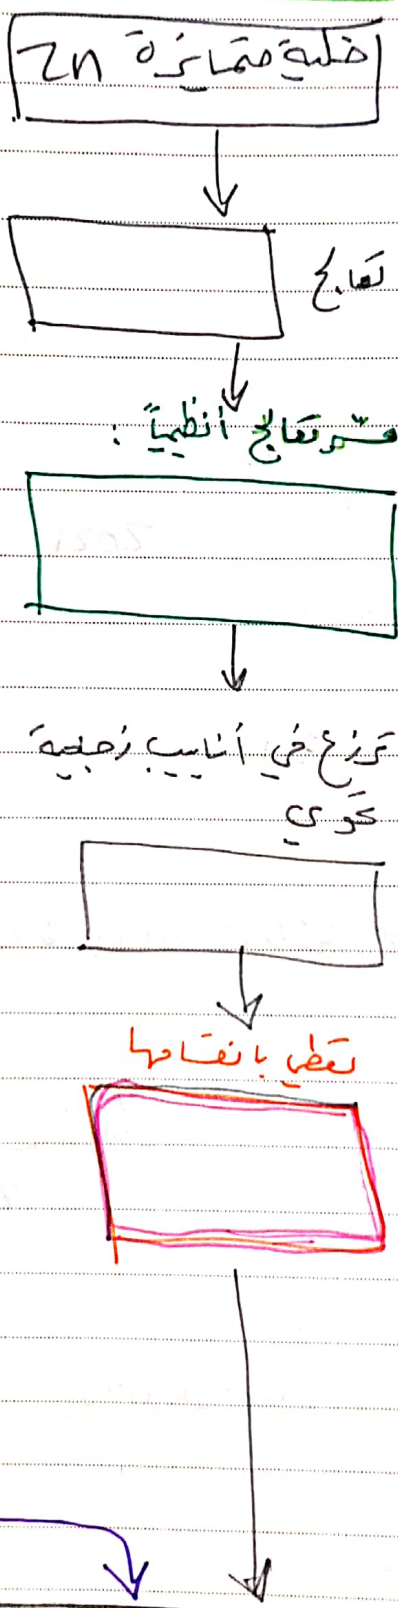 خلية متمايزة 2n
تعالج
فسر تعالج أنظيمياً :
تزرع في أنابيب زجاجية
تحوي
تعطي بانقسامها